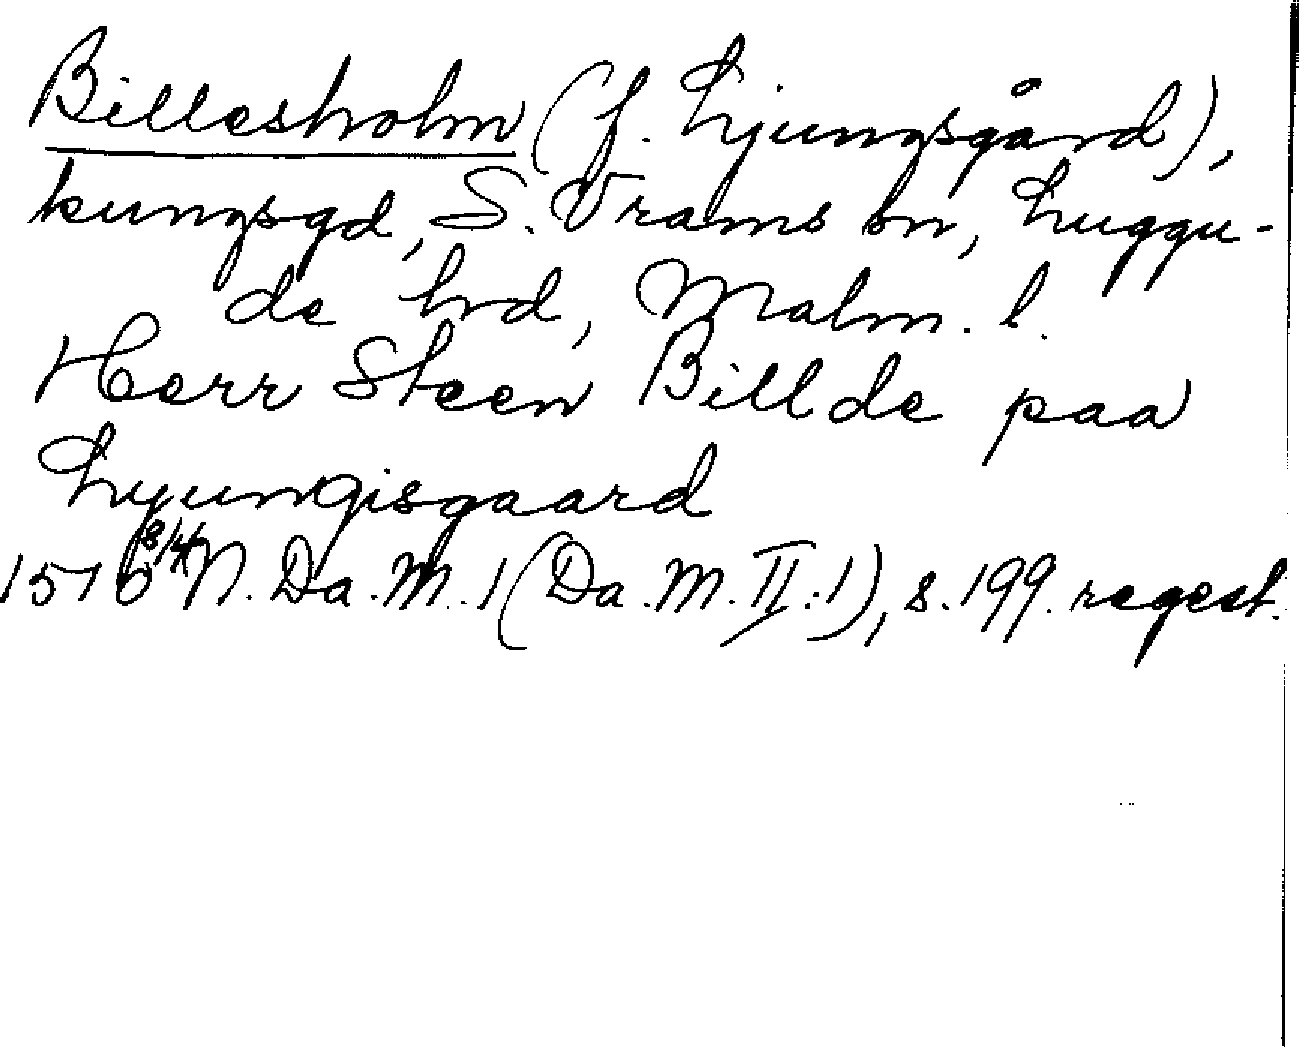 Billesholm (f. Ljungsgård),
kungsgd, S. Vrams sn, Luggu-
de hrd, Malm. l.
Herr Steen Billde paa
Lyungisgaard
1576 8/4 N. Da. M. 1 (Da. M. II:1), s. 199. regest.